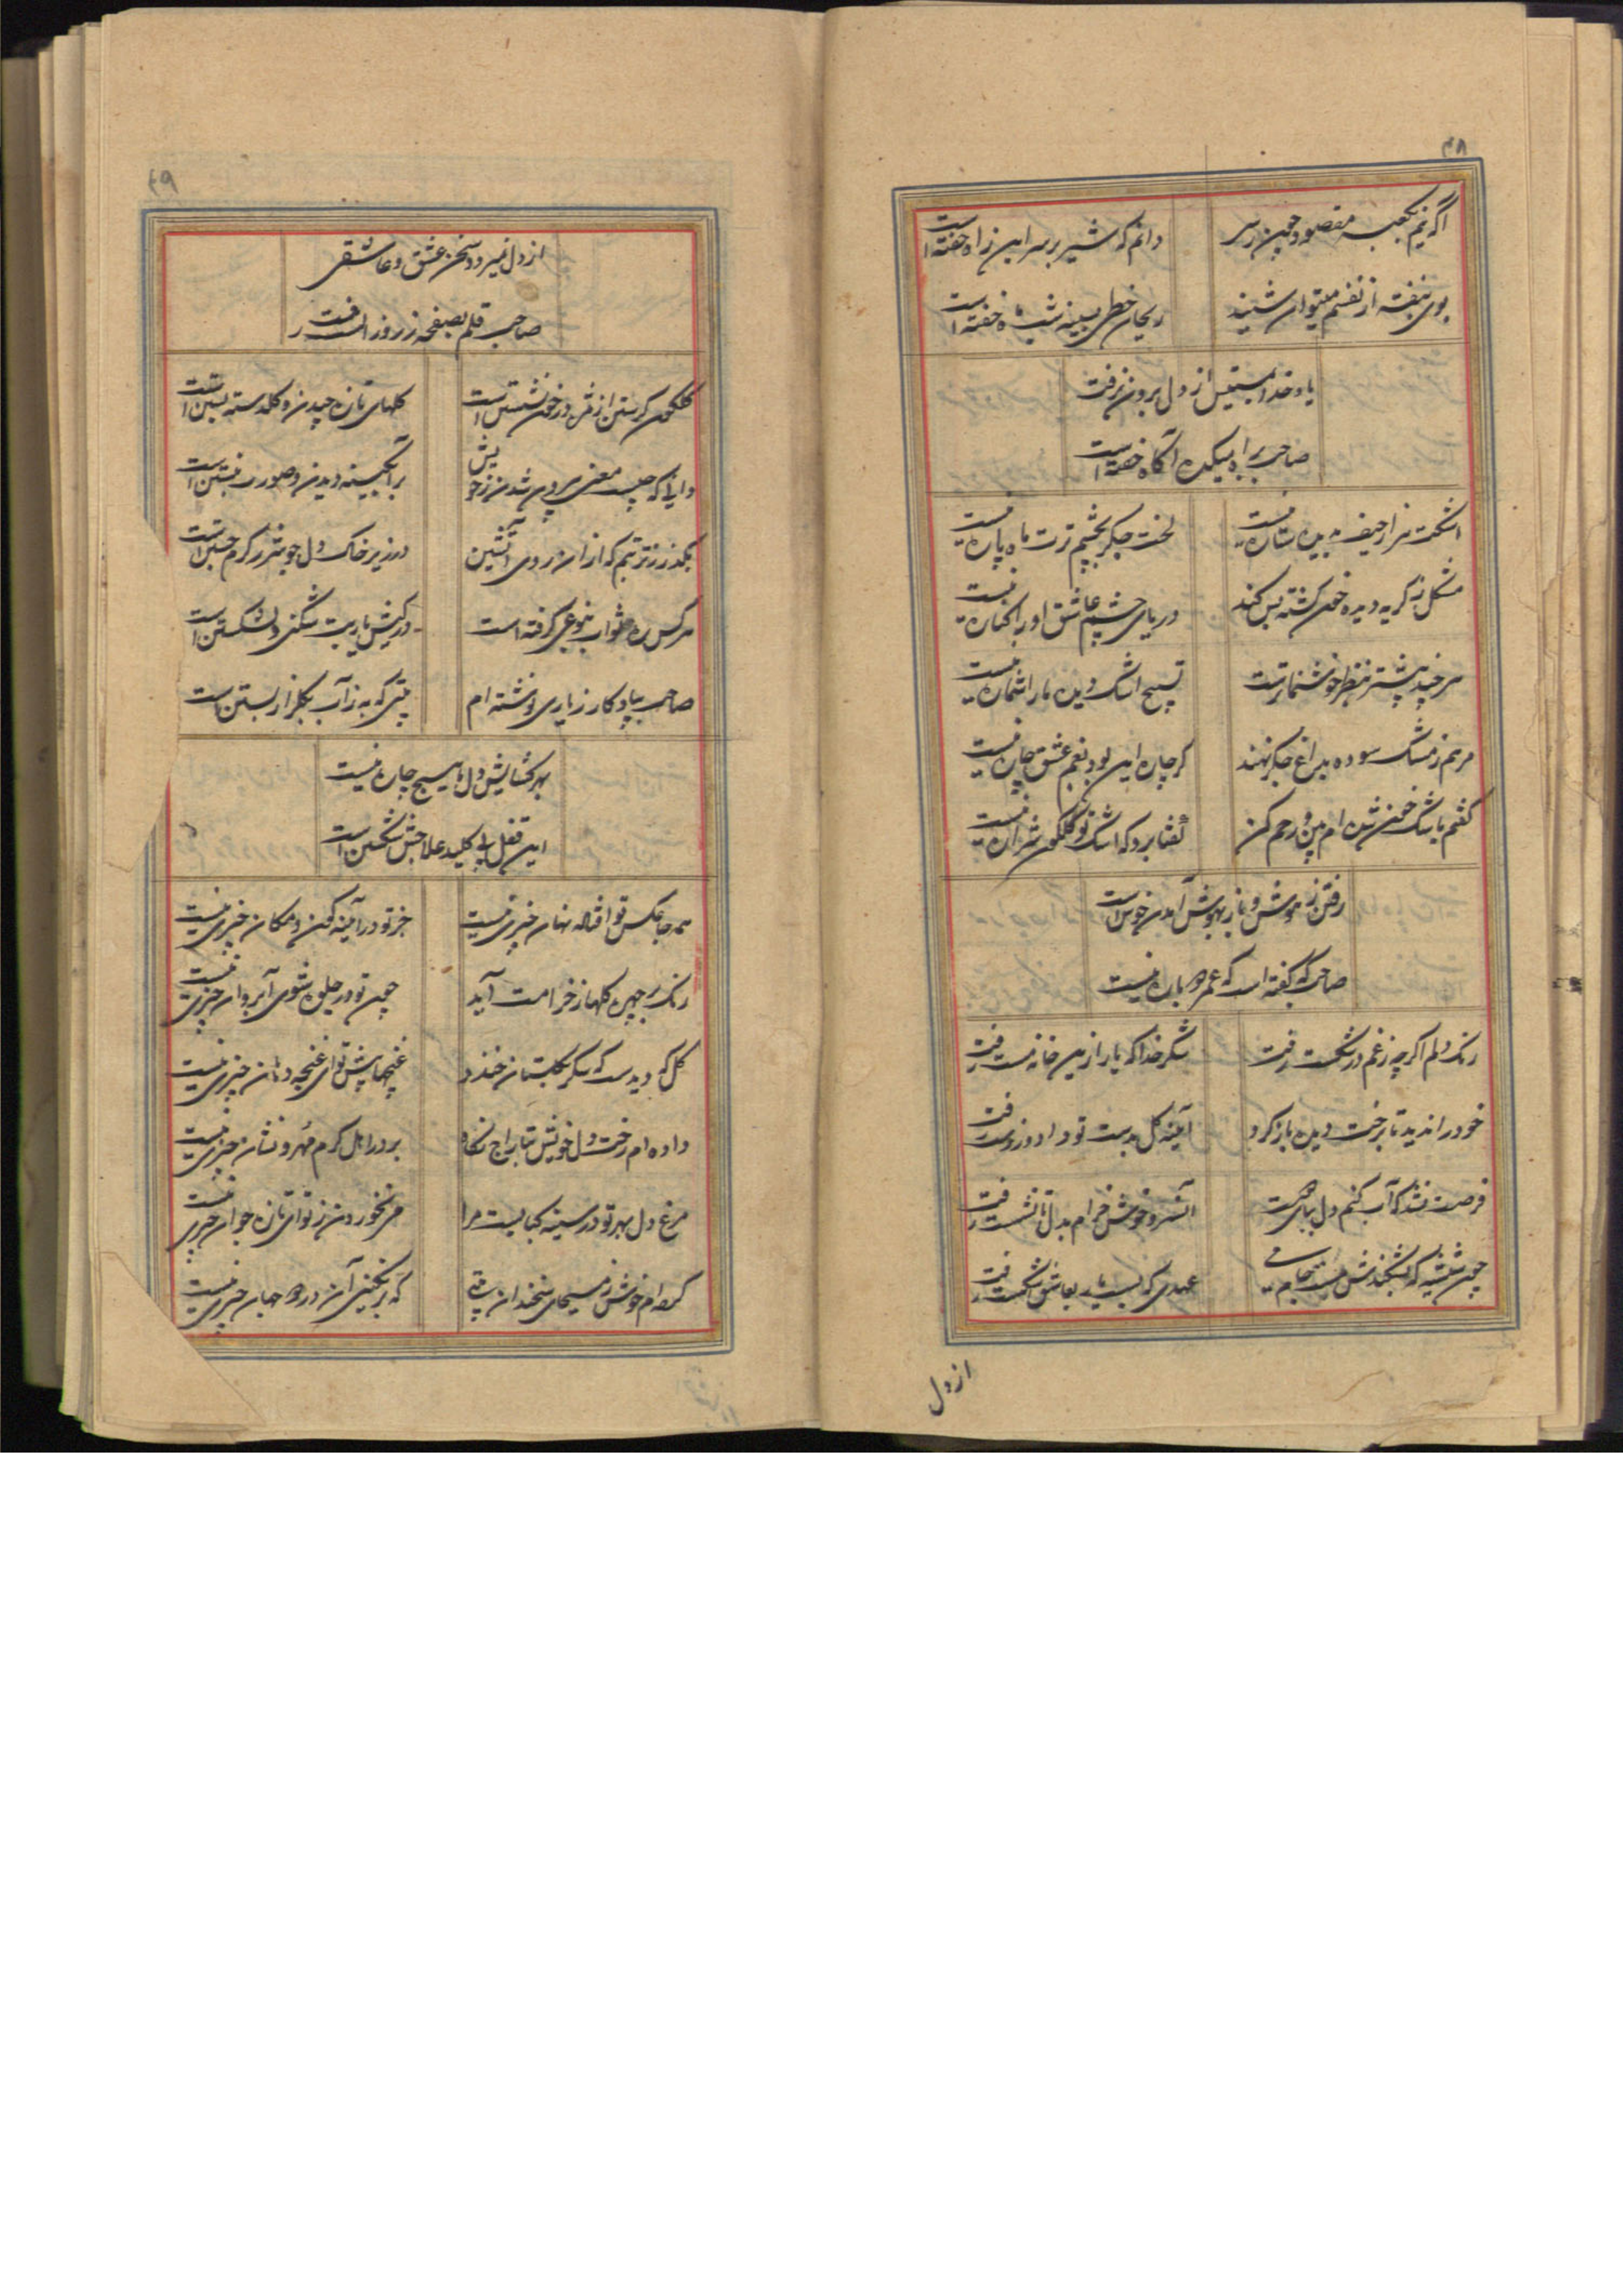 ۴۸
اگه نیم بکعبه مقصود چون رسم
دانم که شیر بر سر این راه خفته است
بوی بنفشه از نفسم میتوان شنید
ریحان خطی بسینه شب ماه خفته است
یاد خدا از دل برون نرفت
صاحب براه میکده آگاه خفته است
اشکت هزار حیف بدیده ستاره نیست
لخت جگر بچشم ترت ماه پاره نیست
مشکل ز گریه دیده خون گشته بس کند
دریای چشم عاشق او را کناره نیست
هر چند پیشتر بنظر خوشنماتر است
تسبیح اشک دیده ما را شماره نیست
مرهم ز مشک سوده بداغ جگر نهند
گر چاره این بود بغم عشق چاره نیست
گفتم باشک خون شده ام بین و رحم کن
گفتا برو که اشک تو گلگون شراره نیست
رفتن ز هوش و باز بهوش آمدن خوش است
صاحب که گفته است که عمر دوباره نیست
رنگ دلم اگر چه ز غم در شکست رفت
شکر خدا که یار ازین خانه مست رفت
خود را ندید تا برخت دیده باز کرد
آیینه گل بدست تو داد و ز دست رفت
فرصت نشد که آب کنم دل بپای
آن سرو خوش خرام بدل تا نشست رفت
چون شیشه که بشکندش مست
عهدی که بست یار بعاشق شکست رفت
از دل
۴۹
از دل نمیرود سخن عشق و عاشقی
صاحب قلم بصفحه ز روز الست رفت
گلگون گریستن از مژه در خون نشستن است
گلهای تازه چیدن و گلدسته بستن است
دانی که چیست معنی بیرون شدن ز خویش
بر آبگینه دیدن و صورت نبستن است
بگذر ز تربتم که از آن روی آتشین
در زیر خاک دل چو شرر گرم جستن است
هر کس ره ثواب بنوعی گرفته است
در کیش یار بت شکنی دل شکستن است
صاحب بیادگار ز یاری نوشته ام
بیتی که به ز آب بگلزار بستن است
بهر گشایش دل ما هیچ چاره نیست
این قفل بی کلید علاجش شکستن است
همه جا عکس تو افتاده نهان چیزی نیست
جز تو در آینه کون و مکان چیزی نیست
رنگ بر چهره گلها ز خرامت آید
چون تو در جلوه شوی آب روان چیزی نیست
گل که دیدست که بیند گلستان خندد
غنچها پیش تو ای غنچه دهان چیزی نیست
داده ام رخت دل خویش بتاراج نگاه
بر در اهل کرم مهر و نشان چیزی نیست
مرغ دل بهر تو در سینه کبابیست مرا
می نخوردن ز تو ای تازه جوان چیزی نیست
کرده ام خوش ز مسیحای سخندان بیتی
که برنگینی آن در دو جهان چیزی نیست